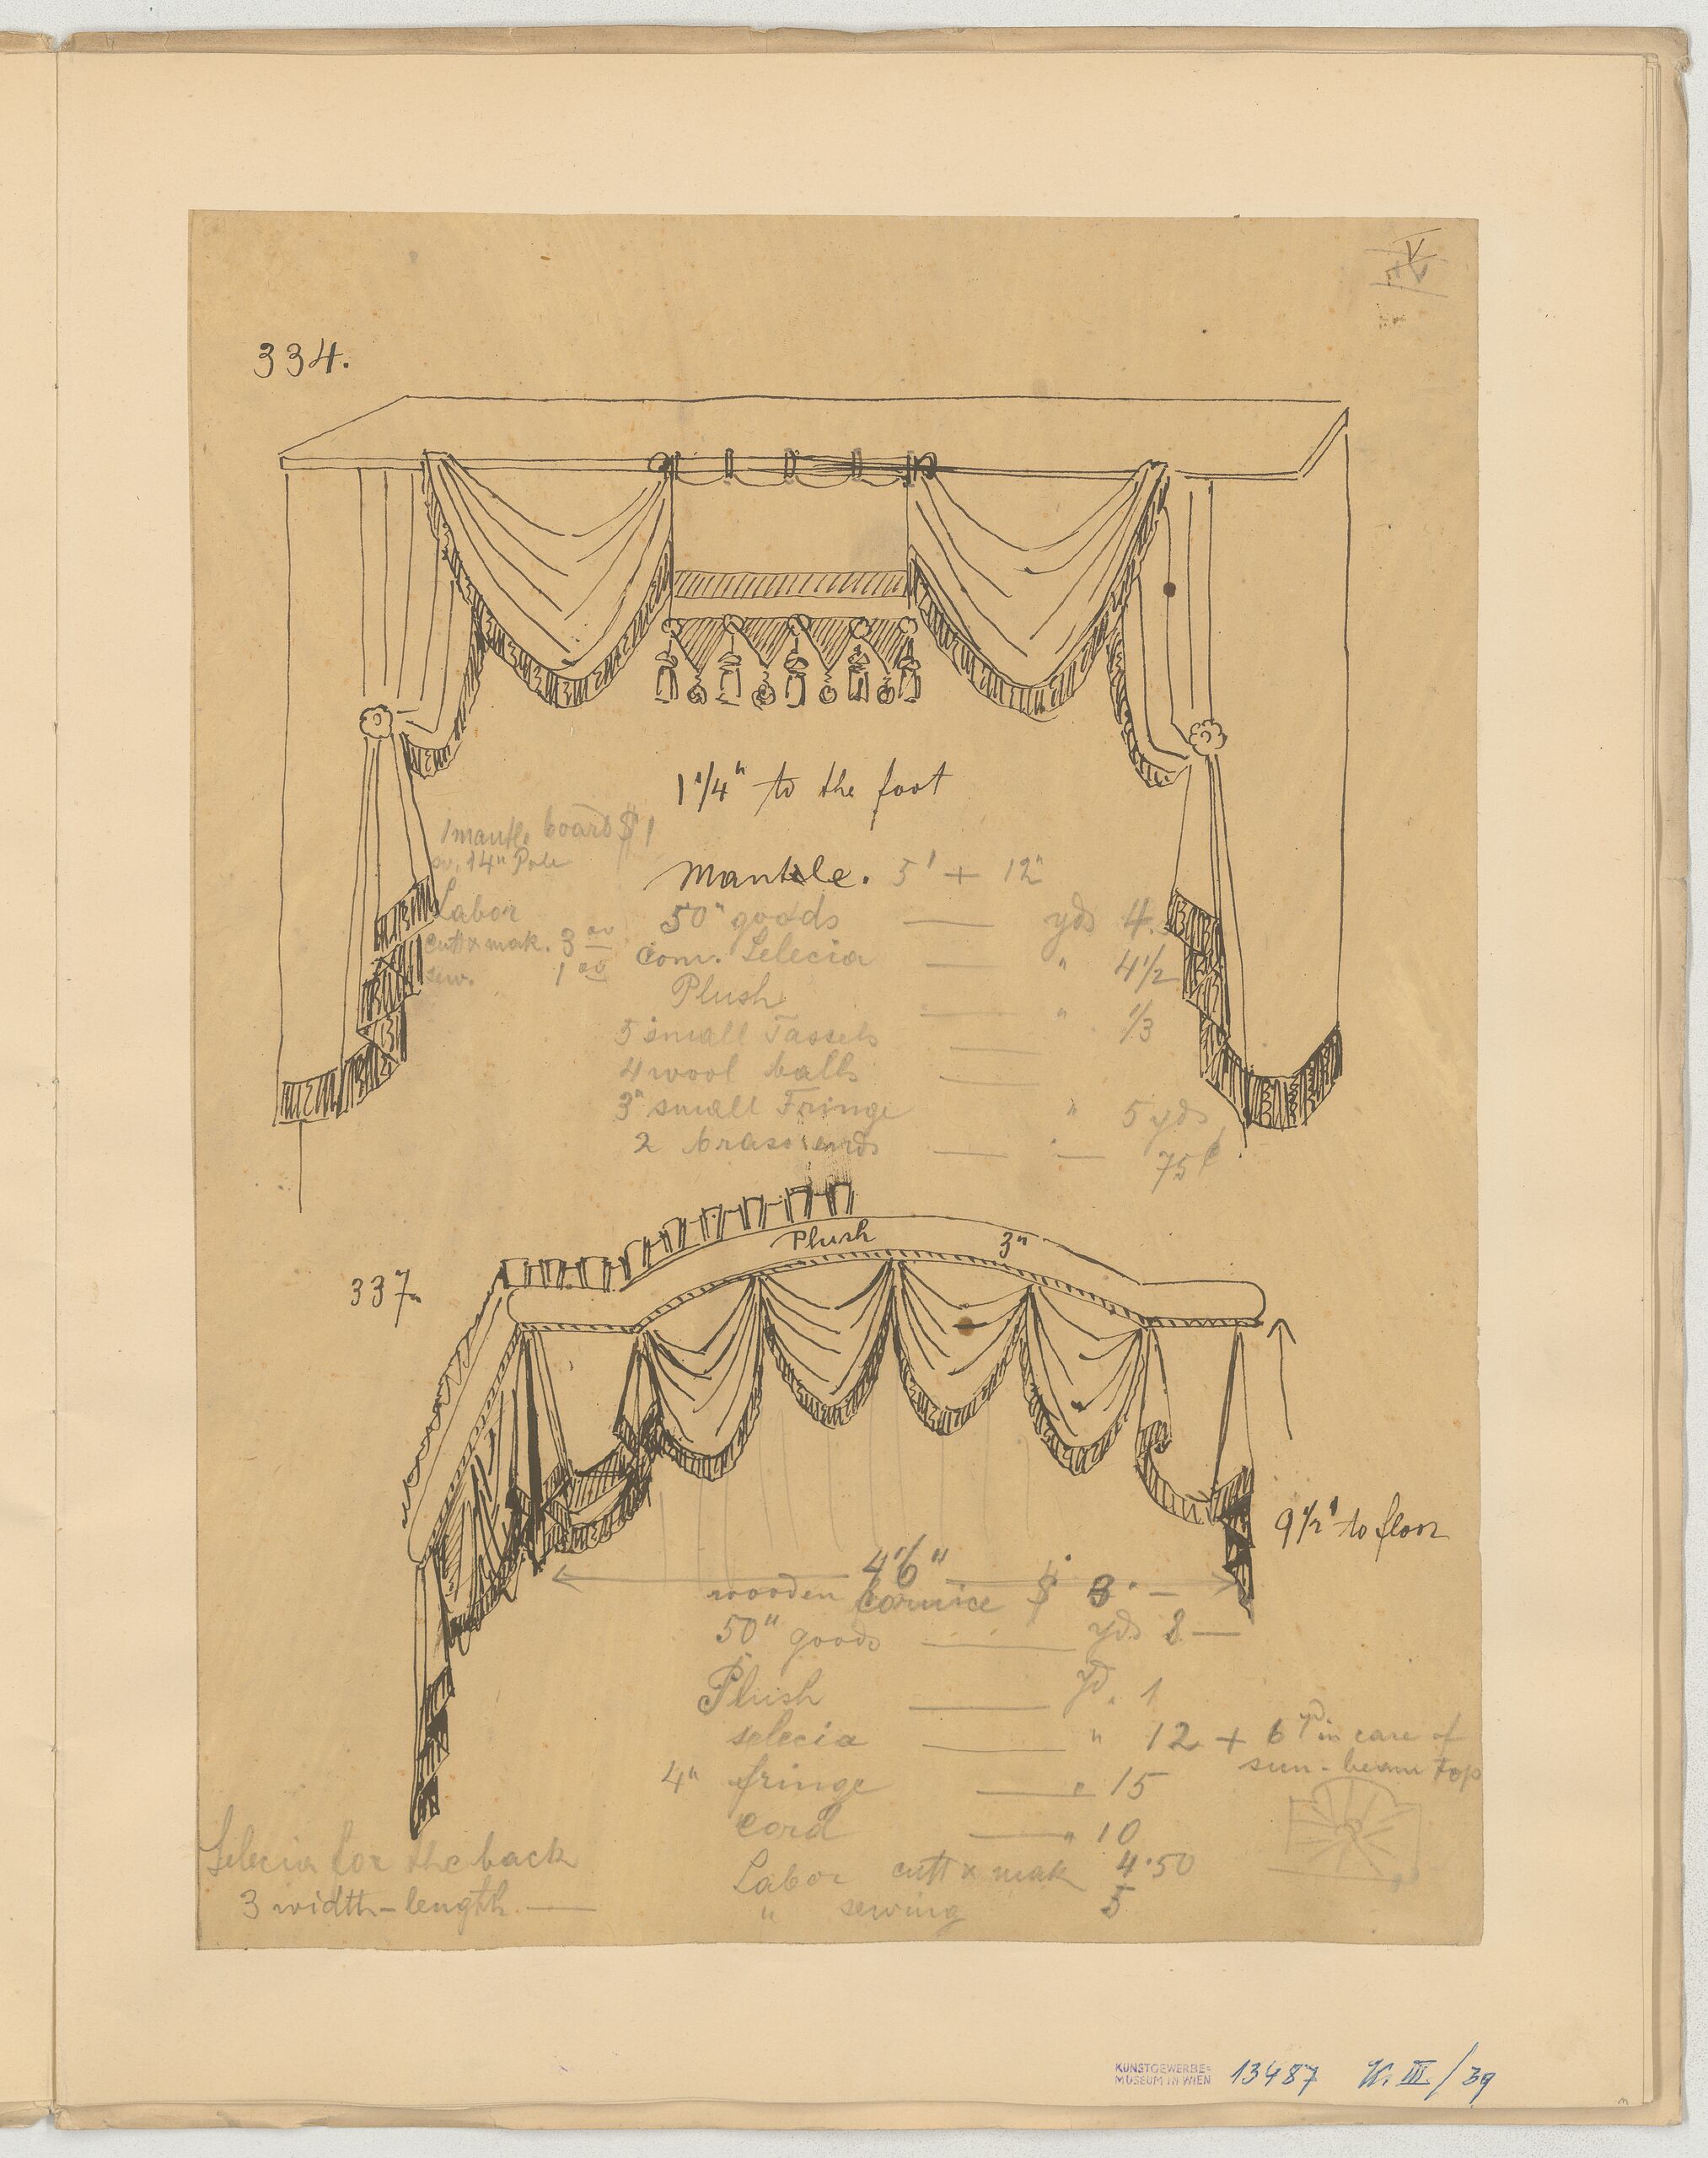 334.
1 1/4" to the foot
1 mantle board $ 1
14" Pole
Mantle. 5' + 12"
Labor
cutt x mak. 3 00
sew. 1 00
50" goods — yds 4.
Com. Selecia — " 4 1/2
Plush — " 1/3
5 small Tassels —
4 wool balls —
3" small Fringe " 5 yds
2 brass ends — — 75¢
337.
Plush 3"
9 1/2' to floor
4'6"
wooden Cornice $ 3. —
50" goods — yds 8 —
Plush — yd. 1
selecia — " 12 + 6 yd in case of
sun-beam top
4" fringe — " 15
Cord — " 10
Labor cutt x mak 4.50
" sewing 5
Selecia for the back
3 width - length —
KUNSTGEWERBE=
MUSEUM IN WIEN
13487 K. III / 39